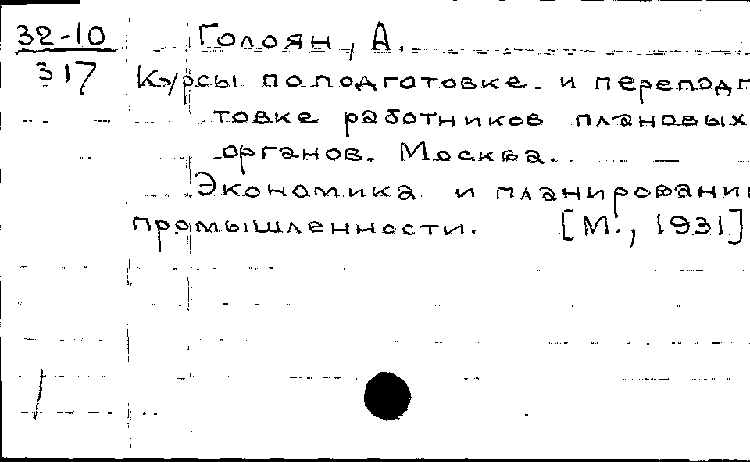 32-10 Голоян, А.
317 Курсы по подготовке и переподг
товке работников плановых
органов. Москва.
Экономика и планировани
промышленности. [М., 1931]